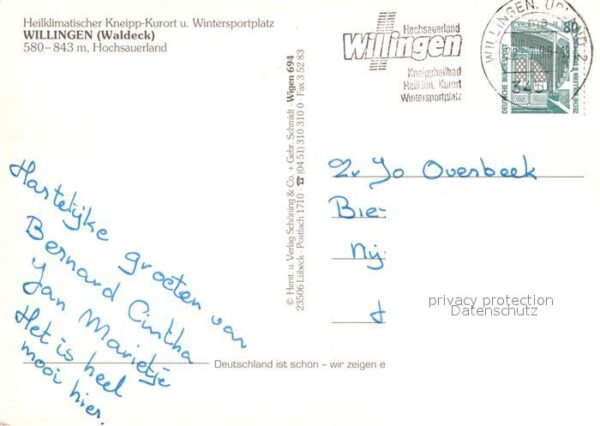 Heilklimatischer Kneipp-Kurort u. Wintersportplatz
WILLINGEN (Waldeck)
580–843 m, Hochsauerland
Hochsauerland
Willingen
Kneippheilbad
Heilklim. Kurort
Wintersportplatz
WILLINGEN, UPLAND 2
80
DEUTSCHE BUNDESPOST
ZECHE ZOLLERN II DORTMUND
Hartelijke groeten van
Bernard Cintha
Jan Marietje
Het is heel
mooi hier.
© Herst. u. Verlag Schöning & Co. + Gebr. Schmidt · Wigen 694
23506 Lübeck · Postfach 1710 · ☎ (04 51) 310 310 0 · Fax 3 52 83
Jo Overbeek
Bie-
Nij-
privacy protection
Datenschutz
Deutschland ist schön – wir zeigen e